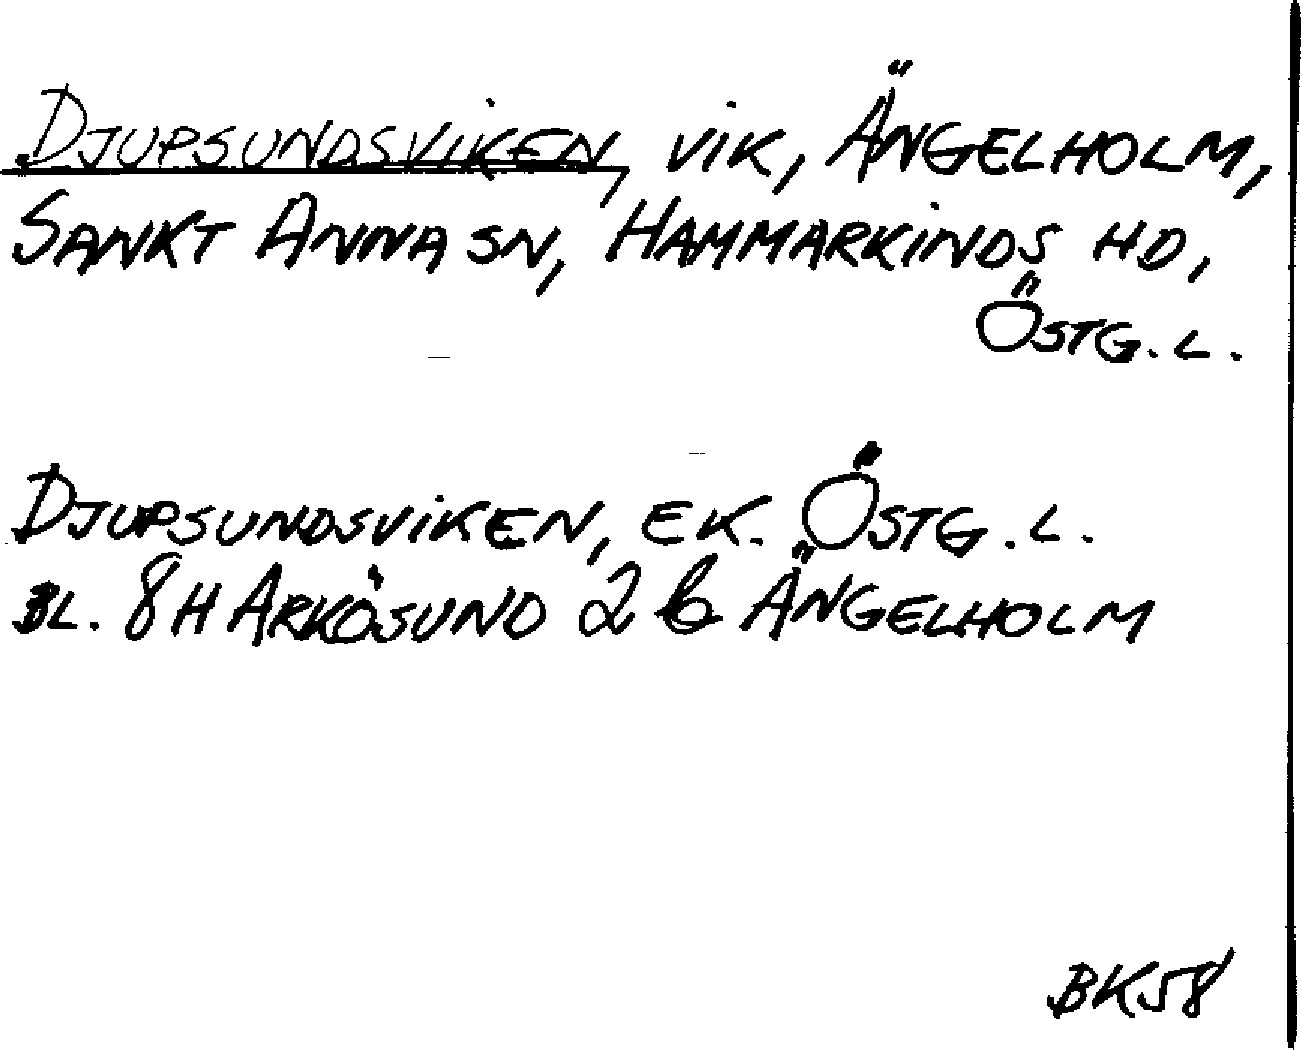 DJUPSUNDSVIKEN, VIK, ÄNGELHOLM,
SANKT ANNA SN, HAMMARKINDS HD,
ÖSTG. L.
DJUPSUNDSVIKEN, EK. ÖSTG. L.
BL. 8H ARKÖSUND 2 b ÄNGELHOLM
BK58